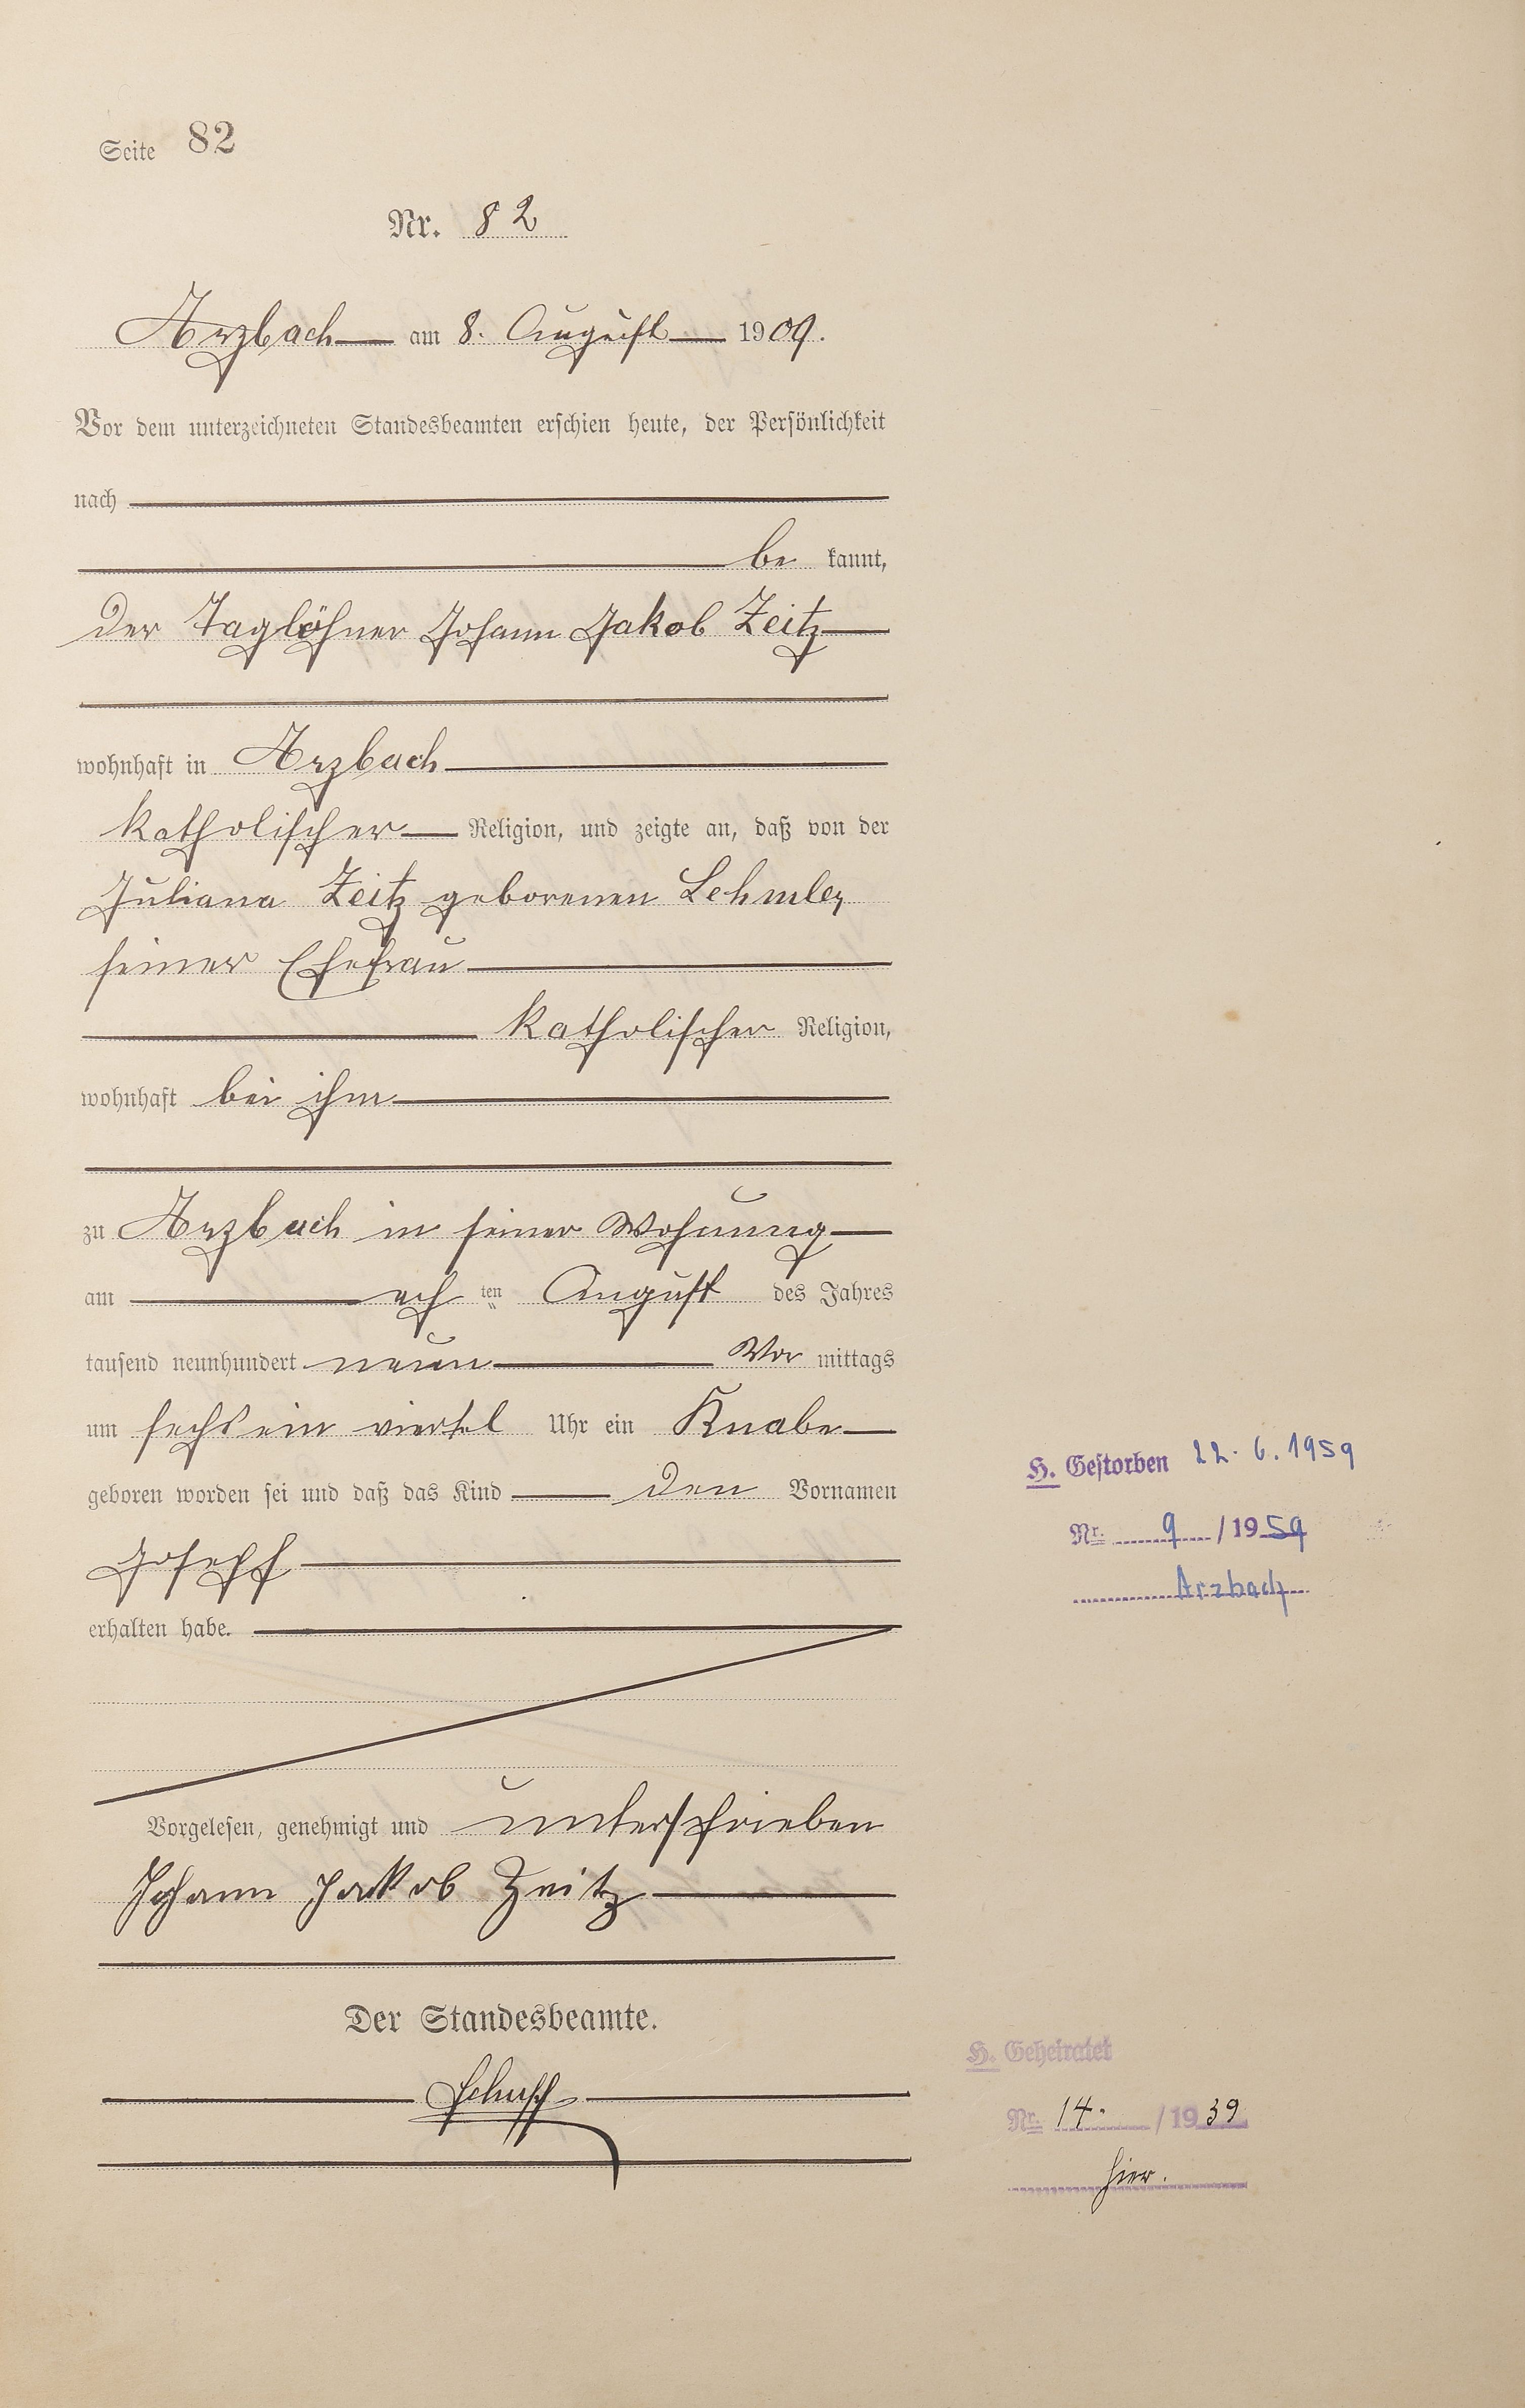 Seite 82
Nr. 82
Arzbach am 8. August 1909.
Vor dem unterzeichneten Standesbeamten erschien heute, der Persönlichkeit
nach
be kannt,
der Taglöhner Johann Jakob Zeitz
wohnhaft in Arzbach
katholischer Religion, und zeigte an, daß von der
Juliana Zeitz geborenen Lehmler
seiner Ehefrau
katholischer Religion,
wohnhaft bei ihm
zu Arzbach in seiner Wohnung
am ach ten August des Jahres
tausend neunhundert neun Vor mittags
um sechs ein viertel Uhr ein Knabe
geboren worden sei und daß das Kind den Vornamen
Joseph
erhalten habe.
Vorgelesen, genehmigt und unterschrieben
Johann Jakob Zeitz
Der Standesbeamte.
H. Gestorben 22.6.1959
Nr. 9 / 1959
Arzbach
H. Geheiratet
Nr. 14. / 1939
hier.